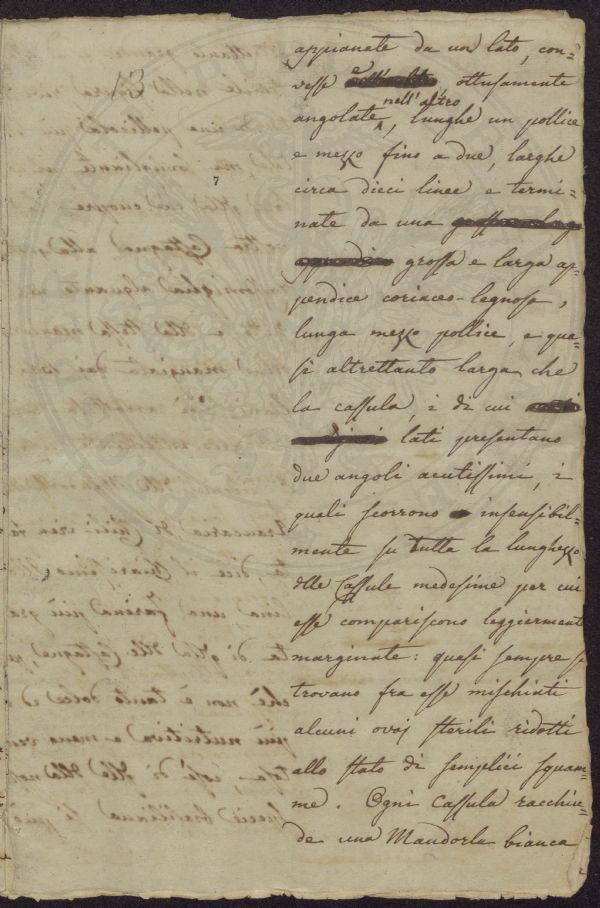 13
7
appianate da un lato, con-
vesse e ottusamente
nell'altro
angolate, lunghe un pollice
e mezzo fino a due, larghe
circa dieci linee e termi-
nate da una
grossa e larga ap-
pendice coriaceo-legnosa,
lunga mezzo pollice, e qua-
si altrettanto larga che
la cassula, i di cui
lati presentano
due angoli acutissimi, i
quali scorrono insensibil-
mente su tutta la lunghezza
delle Cassule medesime per cui
esse compariscono leggiermente
marginate: quasi sempre si
trovano fra esse mischiati
alcuni ovaj sterili ridotti
allo stato di semplici squam-
me. Ogni Cassula racchiu-
de una Mandorla bianca